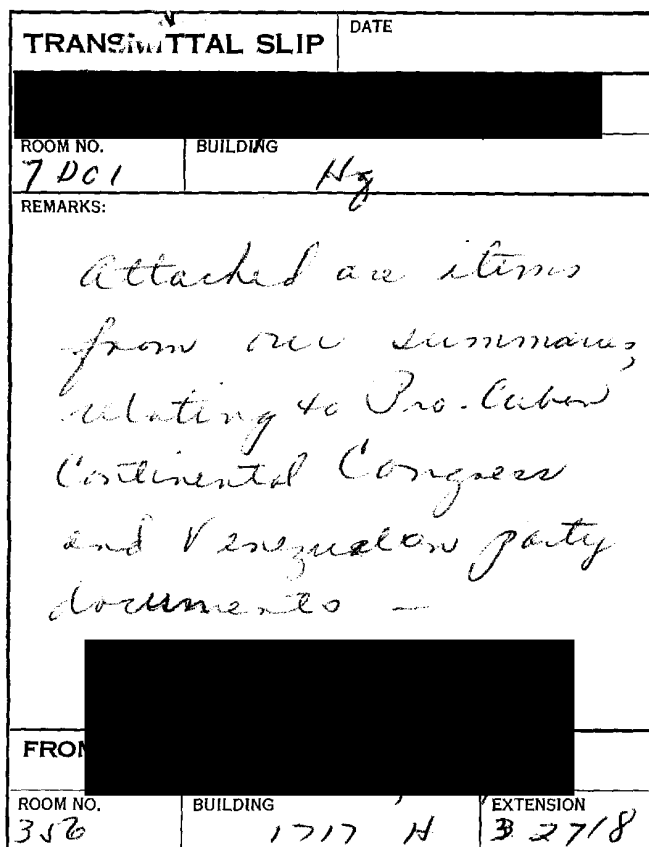 TRANSMITTAL SLIP
DATE
ROOM NO.
7 DC1
BUILDING
Hq
REMARKS:
Attached are items
from our summaries,
relating to Pro-Cuban
Continental Congress
and Venezuelan party
documents —
FROM
ROOM NO.
356
BUILDING
1717 H
EXTENSION
3 2718